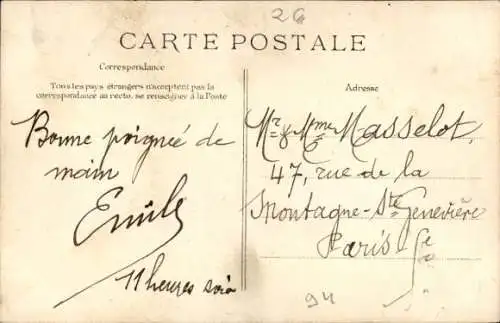 26
CARTE POSTALE
Correspondance
Tous les pays étrangers n'acceptent pas la
correspondance au recto, se renseigner à la Poste
Bonne poigneé de
main
Emile
11 heures soir
Adresse
Mr & Mme Masselot,
47, rue de la
Montagne-Ste Genevière
Paris 5e
94